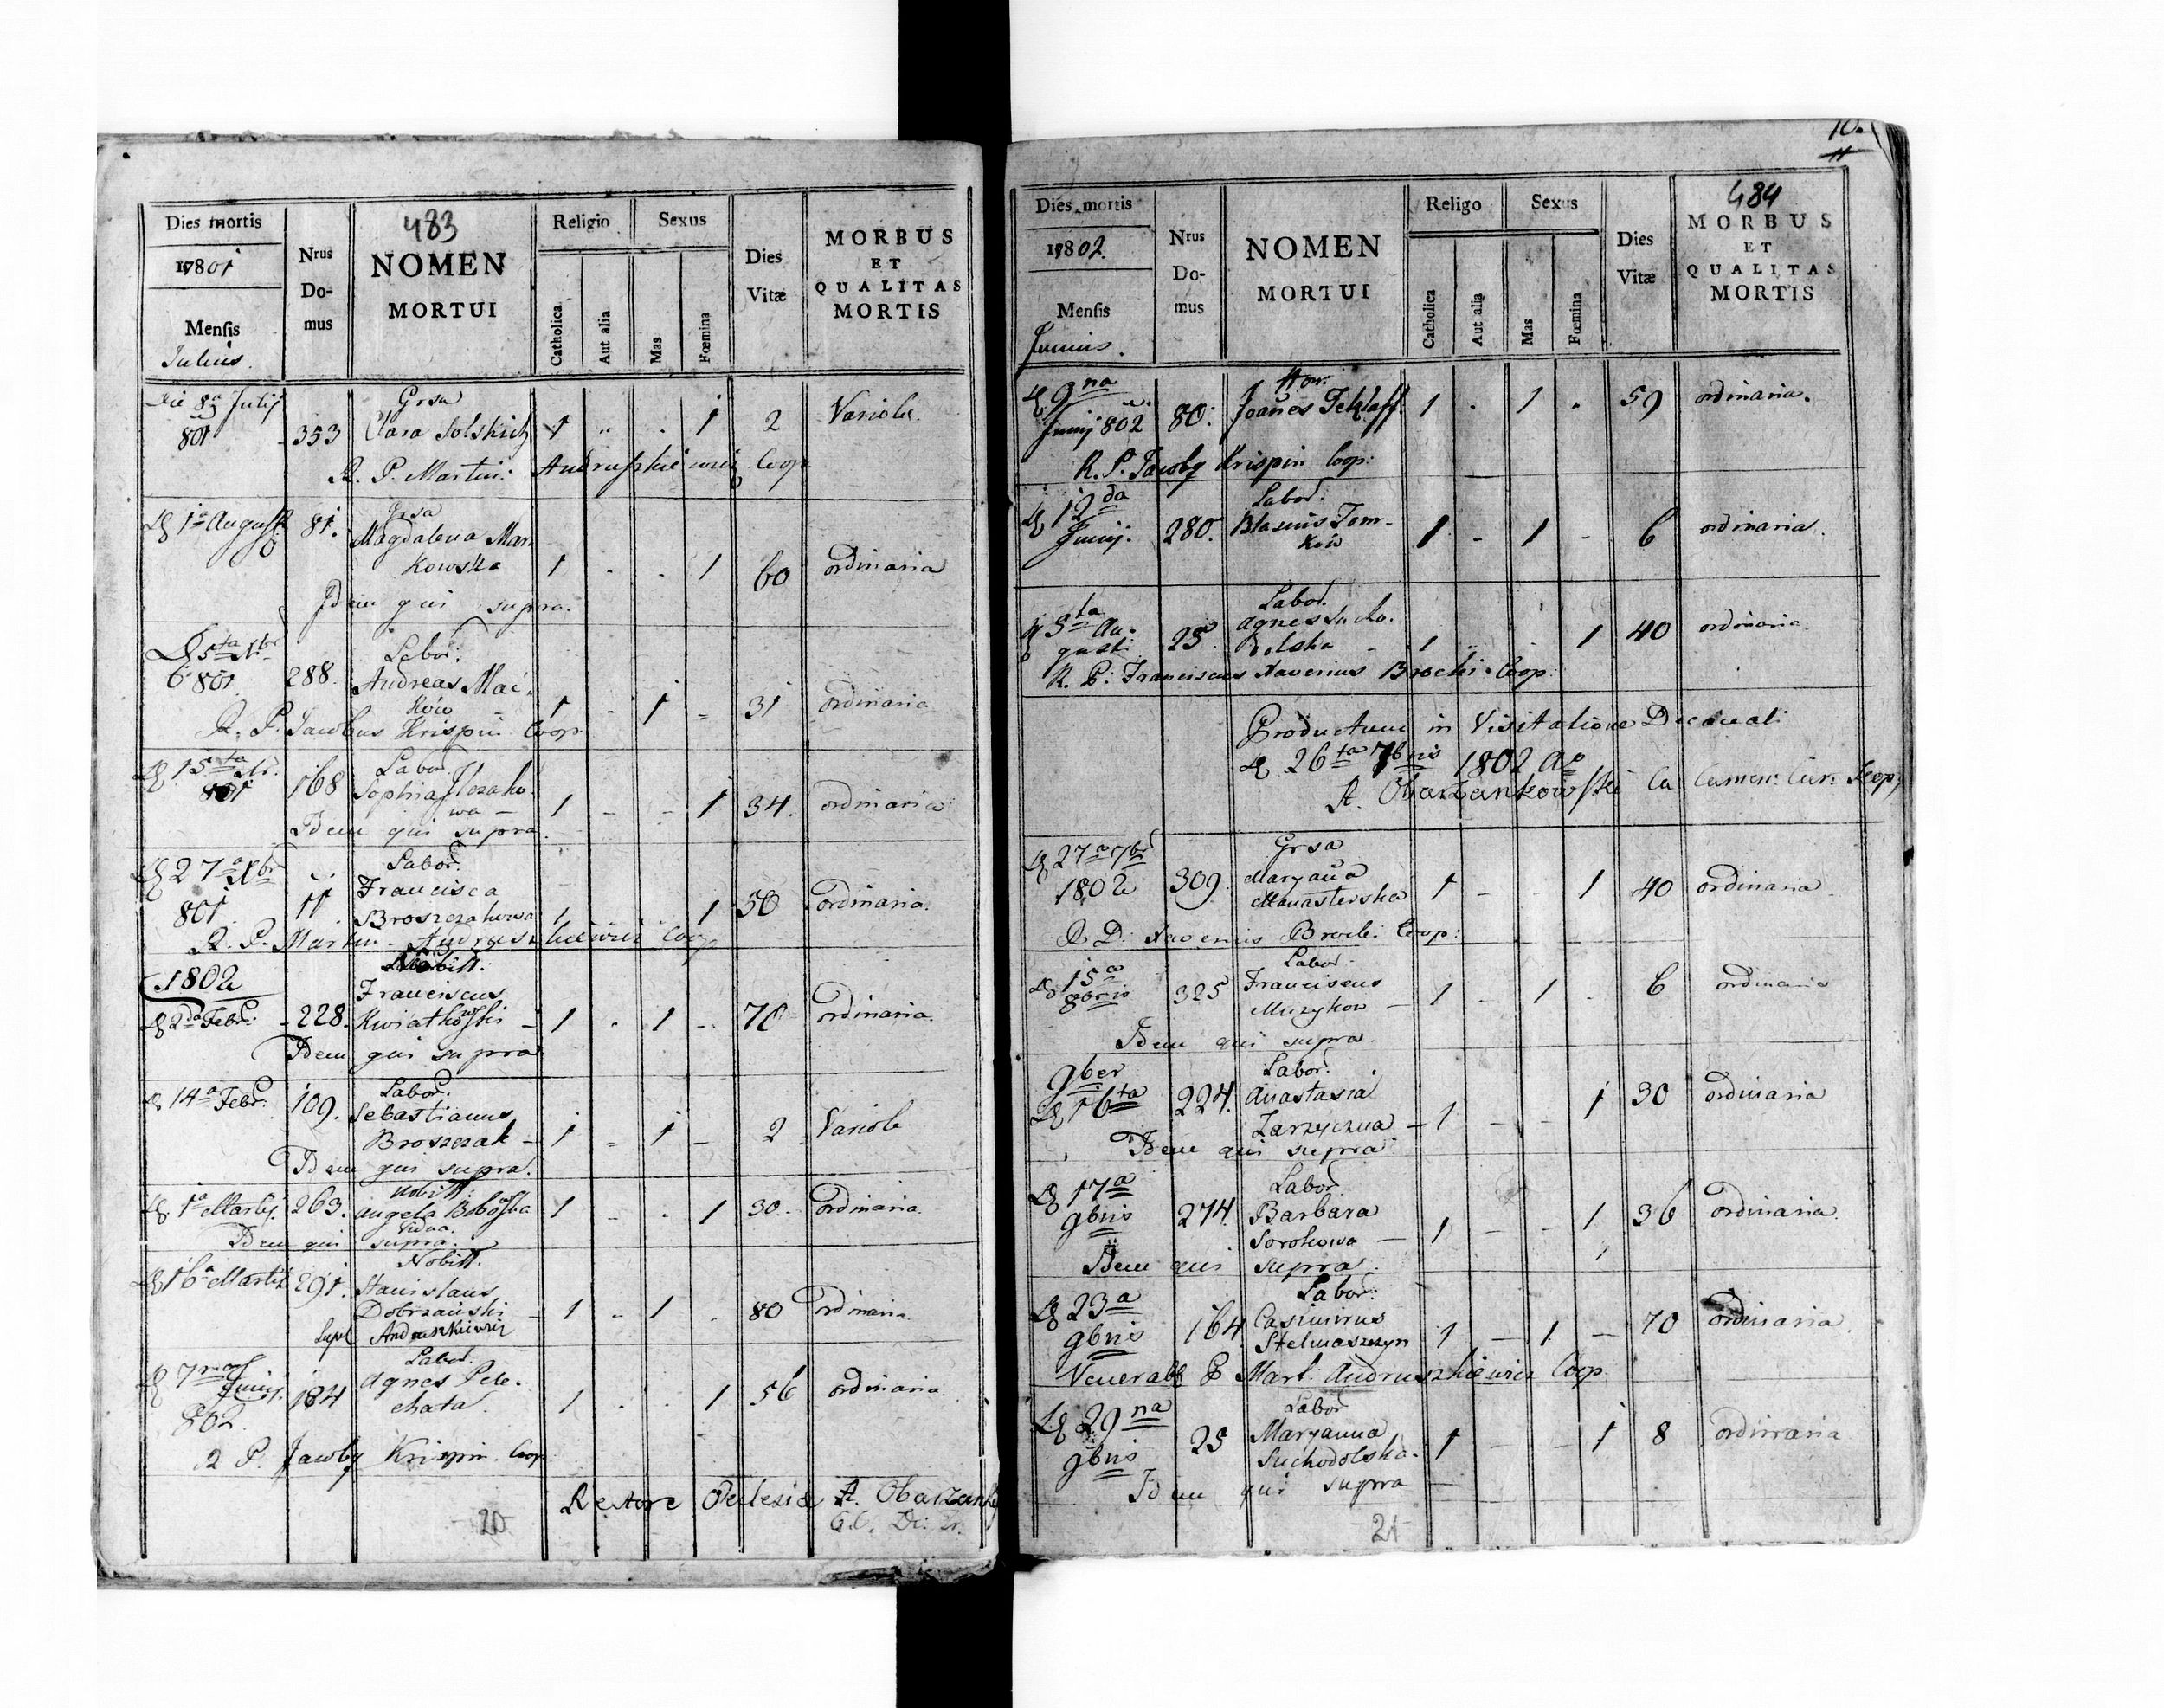 483
Dies mortis
1801
Mensis
Julius.
Nrus
Do-
mus
NOMEN
MORTUI
Religio
Catholica
Aut alia
Sexus
Mas
Fœmina
Dies
Vitæ
MORBUS
ET
QUALITAS
MORTIS
Die 8a Julij
801 353 Grsa
Clara Solskich 1 " . 1 2 Variola.
R. P. Martin: Andruszkiewicz Coop
1a August 81. Grsa
Magdalena Mar
kowska 1 . . 1 60 ordinaria
Idem qui supra.
5ta Xbr
801 288. Labor:
Andreas Mac.
ków 1 - 1 - 31 ordinaria
R. P. Jacobus Krispin Coop
15ta
801 168 Labor.
Sophia
wa - 1 - - 1 34. ordinaria
Idem qui supra.
27a Xbr
801 11. Labor.
Francisca
Broszczakowa 1 1 50 ordinaria.
R. P. Martin. Andruszkiewicz Coop
1802
2da Febr: 228. Nobill:
Franciscus
Kwiatkowski - 1 . 1 - 70 ordinaria.
Idem qui supra
14a Febr: 109. Labor.
Sebastianus
Broszczak - 1 - 1 - 2 Variola
Idem qui supra.
1a Martij. 263. Nobill:
Angela
Vidua. 1 - . 1 30. ordinaria.
Idem qui supra.
16a Martij 291. Nobill.
Stanislaus
Dobrzański - 1 .. 1 . 80 Ordinaria
Andruszkiewicz
7ma Junij.
802. 184 Labor.
Agnes Pele.
chata. 1 . . 1 56 ordinaria.
R P. Jacobus Krispin. Coop
Rectore Eclesiæ A. Obarzank
20
10.
11
484
Dies mortis
1802.
Mensis
Junius.
Nrus
Do-
mus
NOMEN
MORTUI
Religo
Catholica
Aut alia
Sexus
Mas
Fœmina
Dies
Vitæ
MORBUS
ET
QUALITAS
MORTIS
9na
Junij 802 80. Hon:
Joanes Teklaff 1 . 1 . 59 ordinaria.
R. P. Jacobus Krispin Coop:
12da
Junij. 280. Labor.
Blasius Tom-
ków 1 - 1 - 6 ordinaria.
5ta Au:
gusti 25. Labor.
Agnes Sucho.
dolska - 1 . . 1 40 ordinaria
R. P. Franciscus Xaverius Brocki Coop.
Productum in Visitatione Decanali
26ta 7bris 1802 Ao
A. Obarzankowski
27a 7br
1802 309. Grsa
Maryana
Manasterska 1 - - 1 40 ordinaria.
R D. Xaverius Brocki Coop:
15a
8bris 325 Labor.
Franciscus
Muzykow - 1 - 1 - 6 ordinaria
Idem qui supra.
9ber
16ta 224. Labor.
Anastasia
Zarzyczna - 1 - - 1 30 ordinaria
Idem qui supra
17a
9bris 274. Labor.
Barbara
Sorokowa - 1 - - 1 36 ordinaria.
Idem qui supra.
23a
9bris 164 Labor:
Casimirus
Stelmaszczyn 1 - 1 - 70 ordinaria.
Venerabl P Mart. Andruszkiewicz Coop.
29na
9bris 25 Labor
Maryanna
Suchodolska. 1 - - 1 8 ordinaria
Idem qui supra -
21